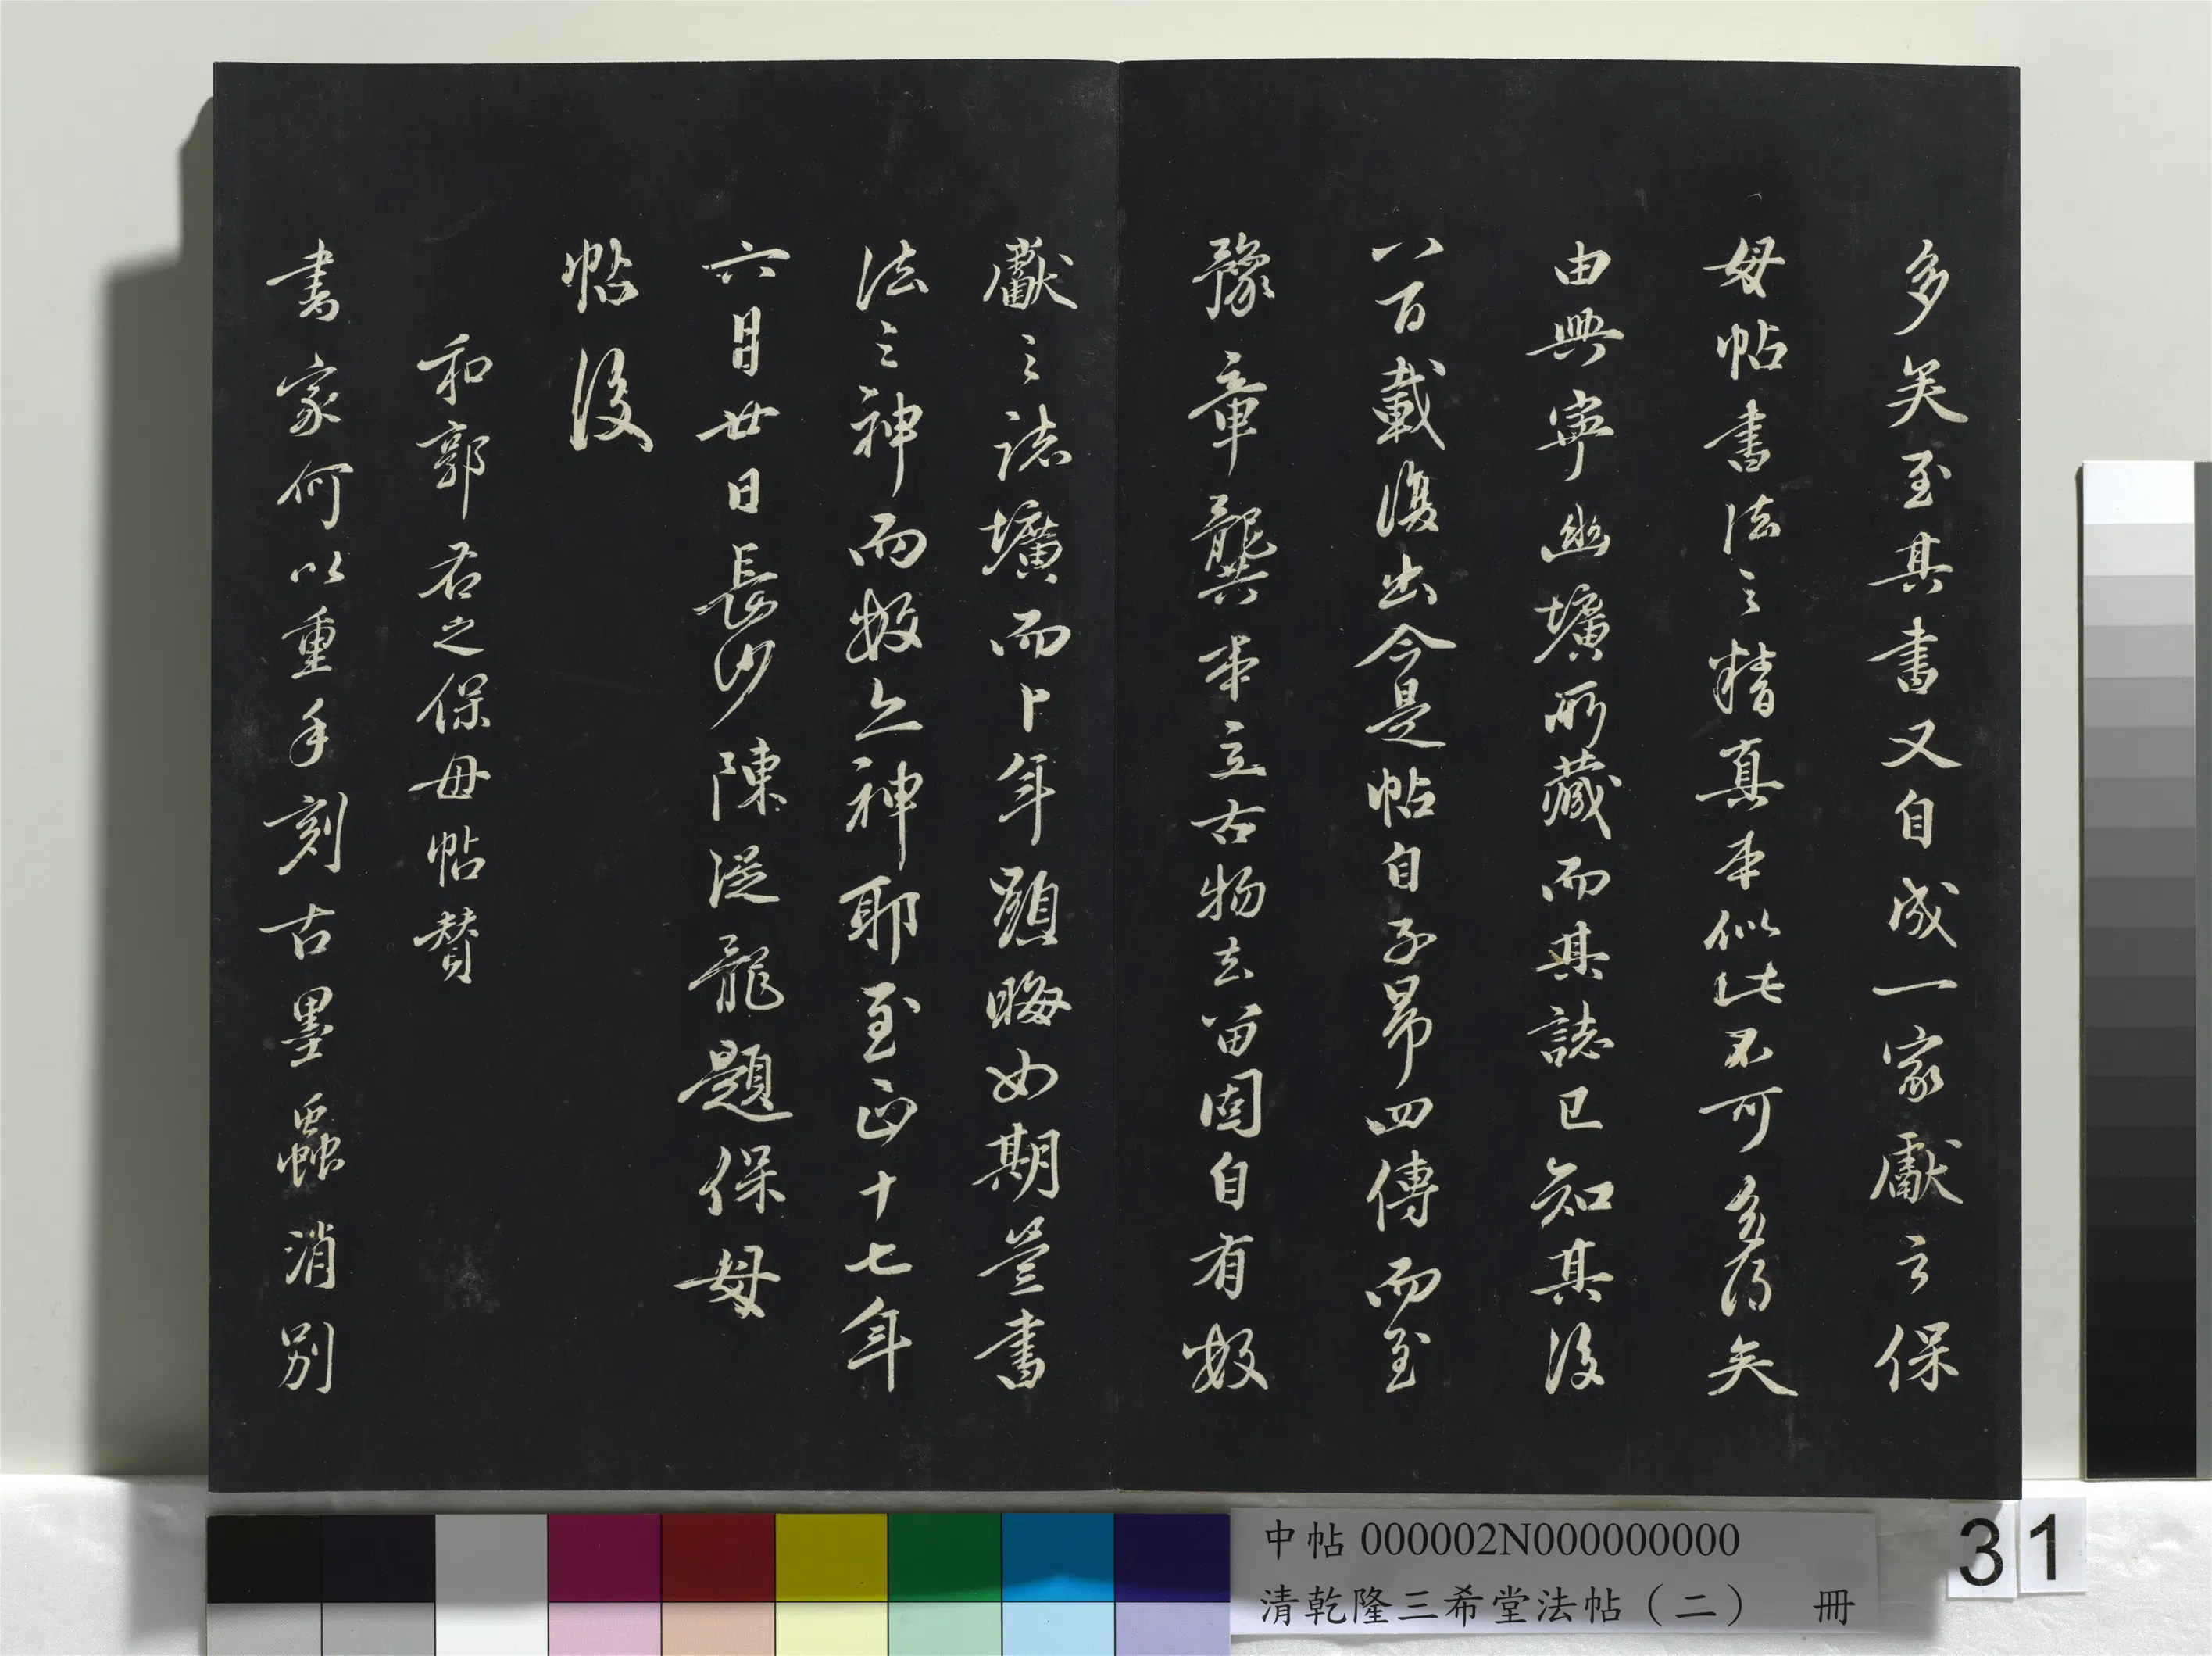 多矣至其書又自成一家獻之保
母帖書法之精真本似此不可多得矣
由興寧幽壙所藏而其誌已知其後
八百載復出今是帖自子昂四傳而至
豫章龔本立古物去留固自有數
獻之誌壙而卜年顯晦如期豈書
法之神而數亦神耶至正十七年
六月廿日長沙陳從龍題保母
帖後
和郭右之保母帖贊
書家何以重手刻古墨蠹消別
中帖 000002N000000000
清乾隆三希堂法帖（二） 冊
31